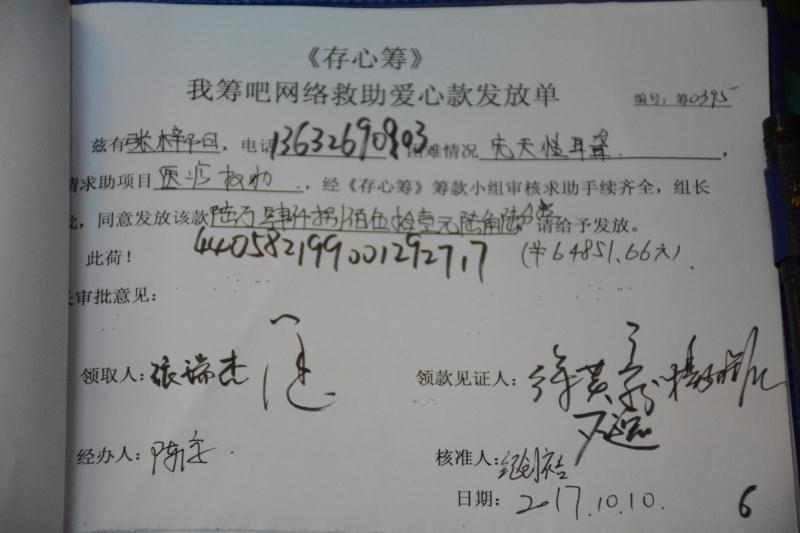 《存心筹》
我筹吧网络救助爱心款发放单
编号：筹0395
兹有张梓阳，电话13632690803困难情况先天性耳聋，
请求助项目医疗救助，经《存心筹》筹款小组审核求助手续齐全，组长
此，同意发放该款陆万肆仟捌佰伍拾壹元陆角陆分 请给予发放。
此荷！ 440582199001292717 (￥64851.66元)
长审批意见：
领取人：张瑞杰 领款见证人：
经办人：陈 核准人：
日期：2017.10.10.
6